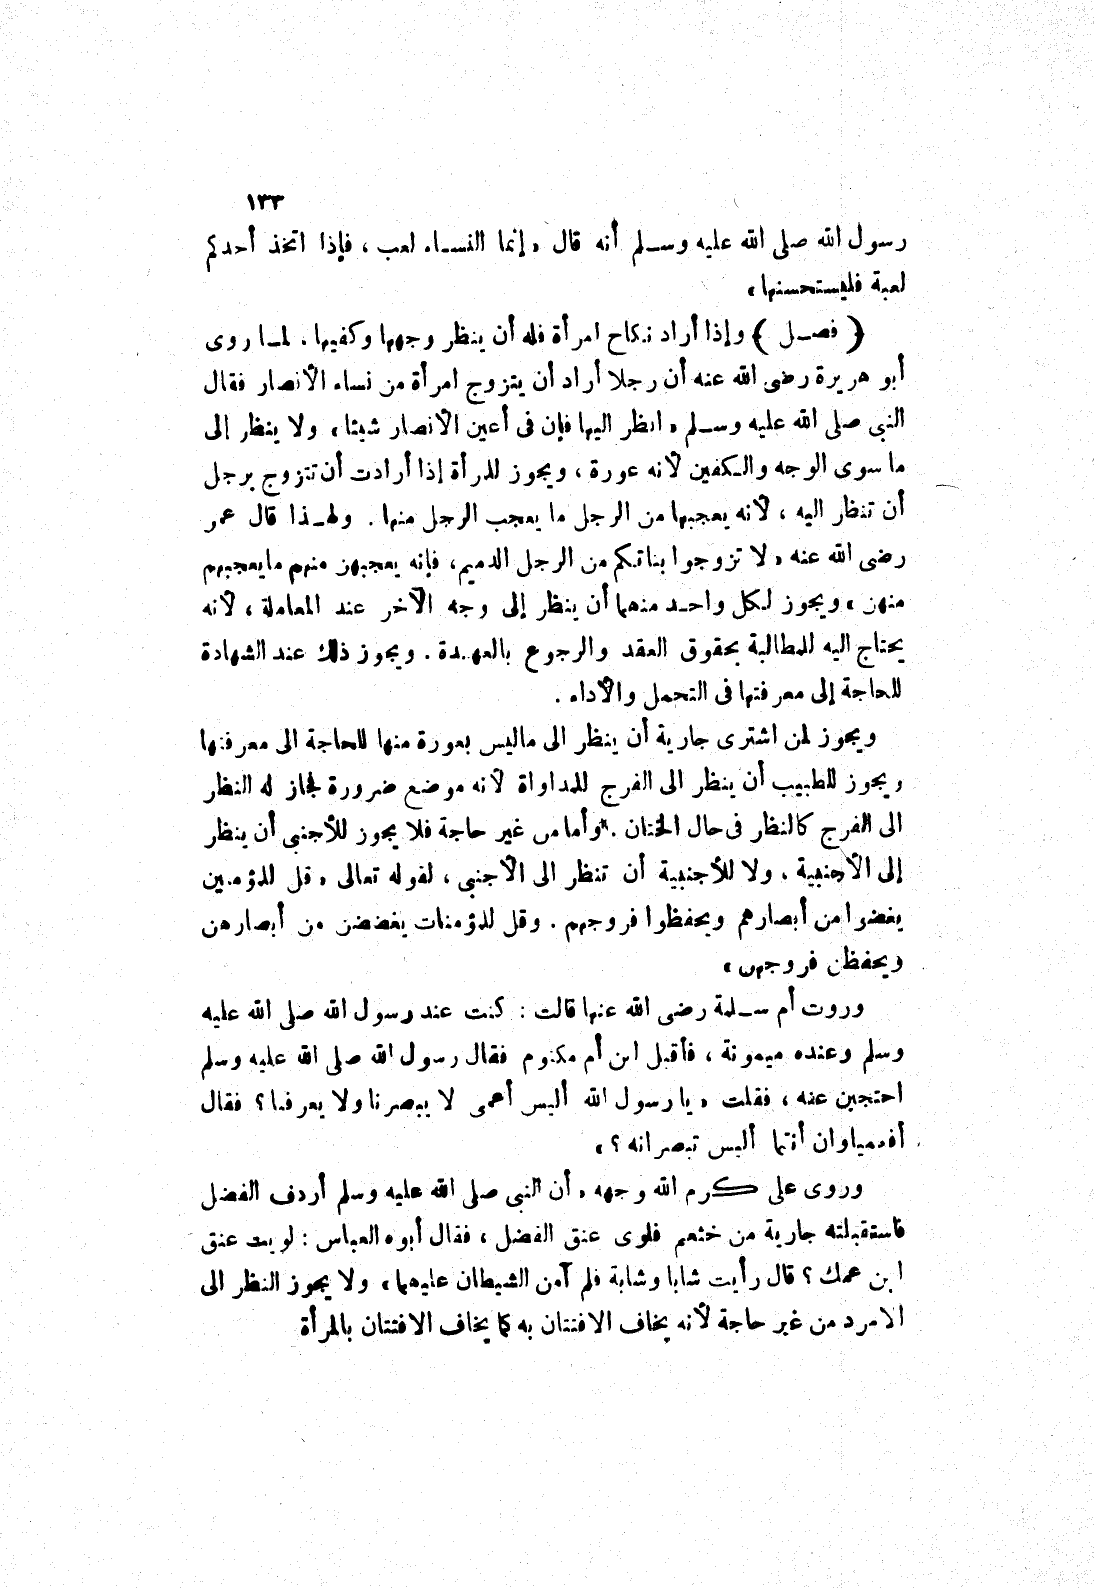 ١٣٣
رسول الله صلى الله عليه وسلم أنه قال « إنما النساء لعب ، فإذا اتخذ أحدكم
لعبة فليستحسنها »
﴿ فصل ﴾ وإذا أراد نكاح امرأة فله أن ينظر وجهها وكفيها . لما روى
أبو هريرة رضى الله عنه أن رجلا أراد أن يتزوج امرأة من نساء الأنصار فقال
النبى صلى الله عليه وسلم « انظر اليها فإن فى أعين الأنصار شيئا » ولا ينظر إلى
ما سوى الوجه والكفين لأنه عورة ، ويجوز للمرأة إذا أرادت أن تتزوج برجل
أن تنظر اليه ، لأنه يعجبها من الرجل ما يعجب الرجل منها . ولهذا قال عمر
رضى الله عنه « لا تزوجوا بناتكم من الرجل الدميم ، فإنه يعجبهن منهم مايعجبهم
منهن » ويجوز لكل واحد منهما أن ينظر إلى وجه الآخر عند المعاملة ، لأنه
يحتاج اليه للمطالبة بحقوق العقد والرجوع بالعهدة . ويجوز ذلك عند الشهادة
للحاجة إلى معرفتها فى التحمل والأداء .
ويجوز لمن اشترى جارية أن ينظر الى ماليس بعورة منها للحاجة الى معرفتها
ويجوز للطبيب أن ينظر الى الفرج للمداواة لأنه موضع ضرورة فجاز له النظر
الى الفرج كالنظر فى حال الختان . وأما من غير حاجة فلا يجوز للأجنبى أن ينظر
إلى الأجنبية . ولا للأجنبية أن تنظر الى الأجنبى ، لقوله تعالى « قل للمؤمنين
يغضوا من أبصارهم ويحفظوا فروجهم . وقل للمؤمنات يغضضن من أبصارهن
ويحفظن فروجهن »
وروت أم سلمة رضى الله عنها قالت : كنت عند رسول الله صلى الله عليه
وسلم وعنده ميمونة ، فأقبل ابن أم مكتوم فقال رسول الله صلى الله عليه وسلم
احتجبن عنه ، فقلت « يا رسول الله أليس أعمى لا يبصرنا ولا يعرفنا ؟ فقال
أفعمياوان أنتما أليس تبصرانه ؟ »
وروى على كرم الله وجهه « أن النبى صلى الله عليه وسلم أردف الفضل
فاستقبلته جارية من خثعم فلوى عنق الفضل ، فقال أبوه العباس : لويت عنق
ابن عمك ؟ قال رأيت شابا وشابة فلم آمن الشيطان عليهما » ولا يجوز النظر الى
الامرد من غير حاجة لأنه يخاف الافتتان به كما يخاف الافتتان بالمرأة